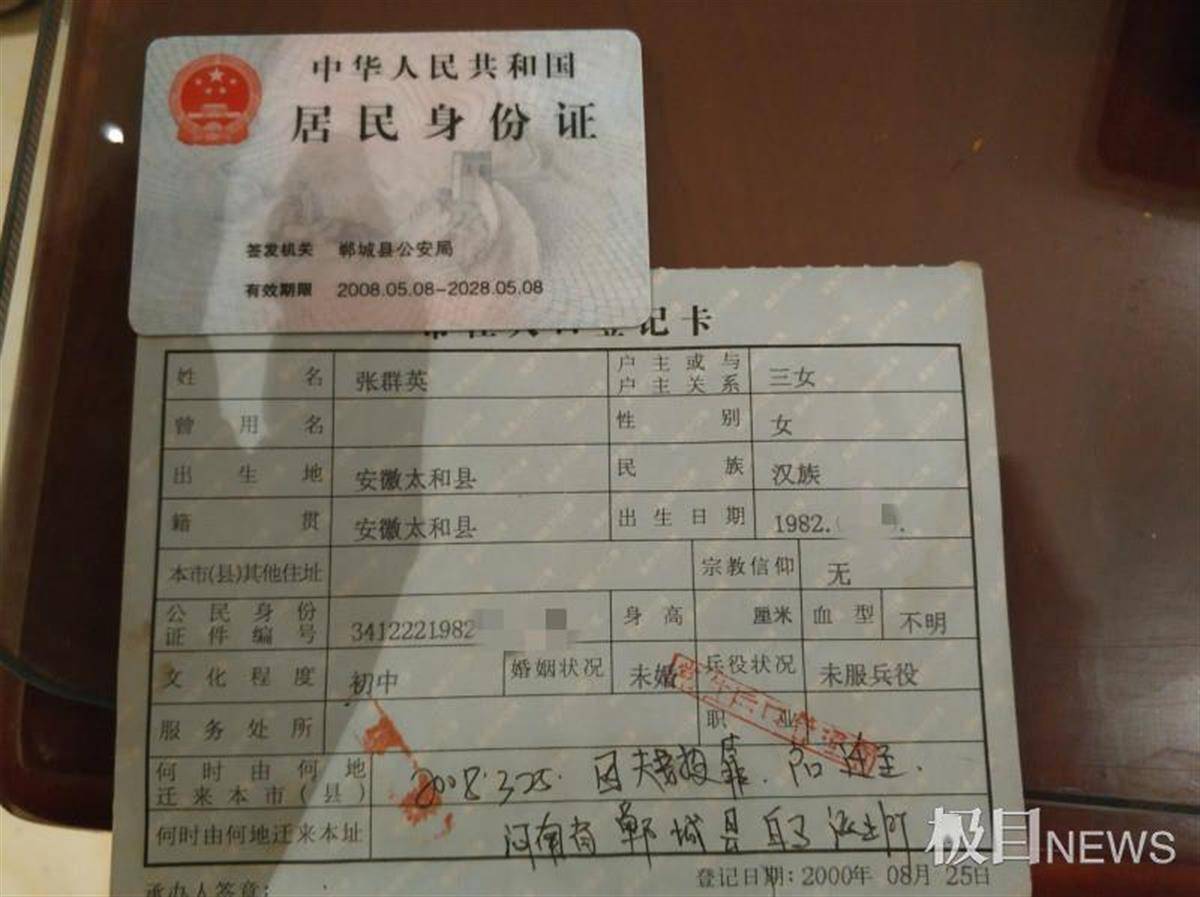 中华人民共和国
居民身份证
签发机关 郸城县公安局
有效期限 2008.05.08-2028.05.08
登记卡
姓名 张群英 户主或与户主关系 三女
曾用名 性别 女
出生地 安徽太和县 民族 汉族
籍贯 安徽太和县 出生日期 1982.
本市(县)其他住址 宗教信仰 无
公民身份证件编号 3412221982 身高 厘米 血型 不明
文化程度 初中 婚姻状况 未婚 兵役状况 未服兵役
服务处所 职业
何时由何地迁来本市(县) 2008.3.25.因夫妻投靠.户口迁至.
何时由何地迁来本址 河南省郸城县 派出所
承办人签章: 登记日期:2000年 08月 25日
极目NEWS